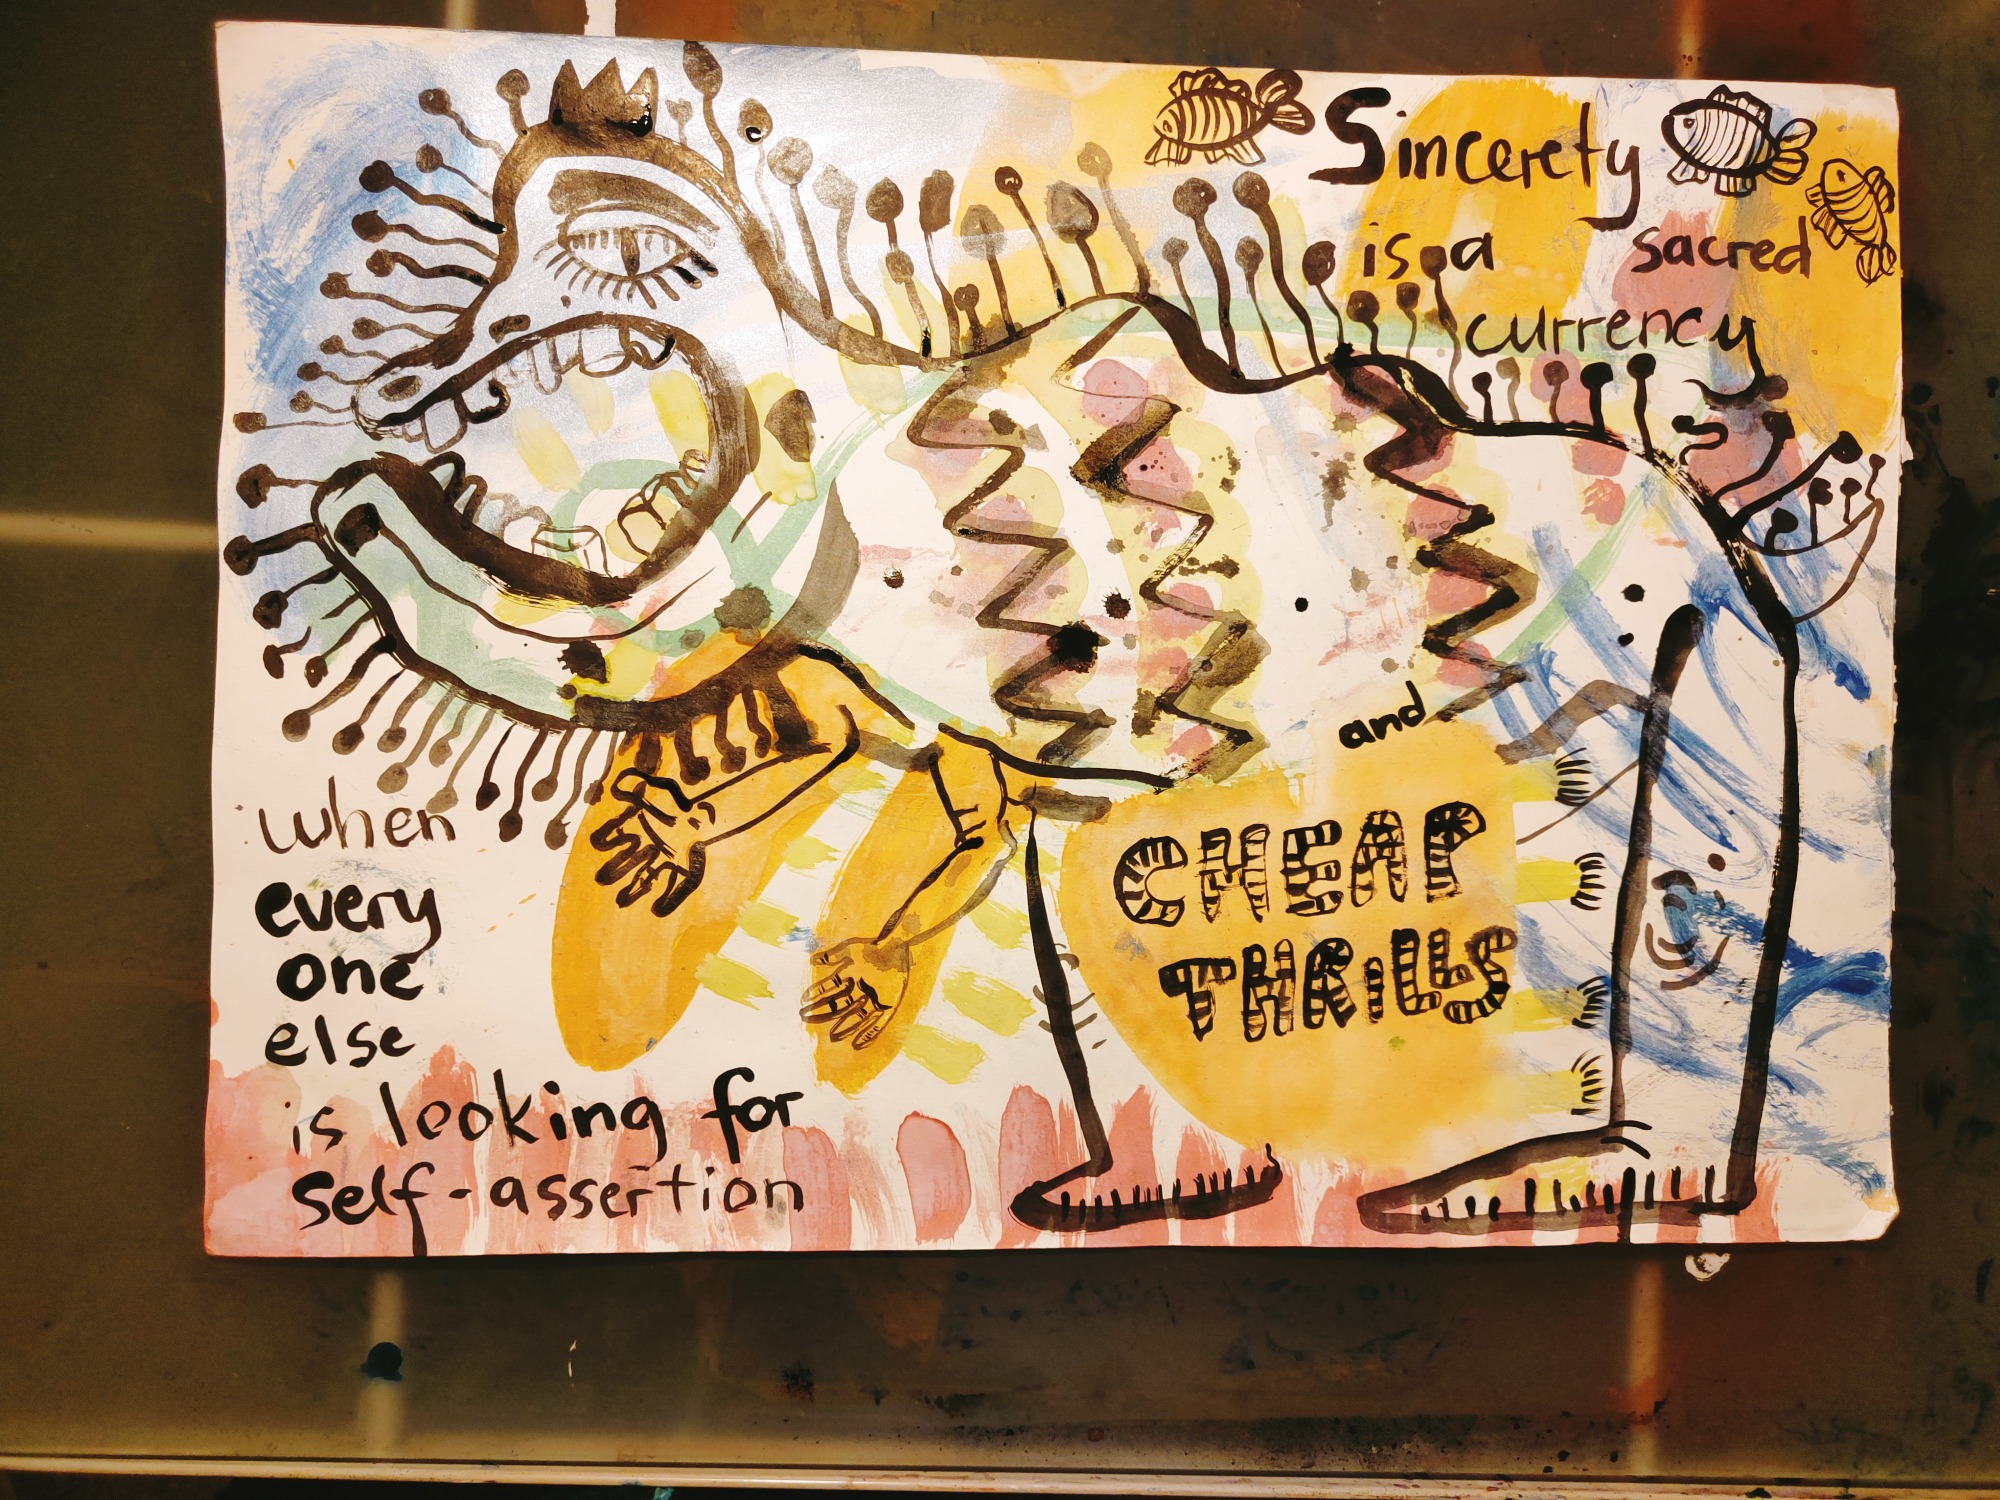 Sincerety
is a sacred
currency
when
every
one
else
is looking for
self-assertion
and
CHEAP
THRiLLS